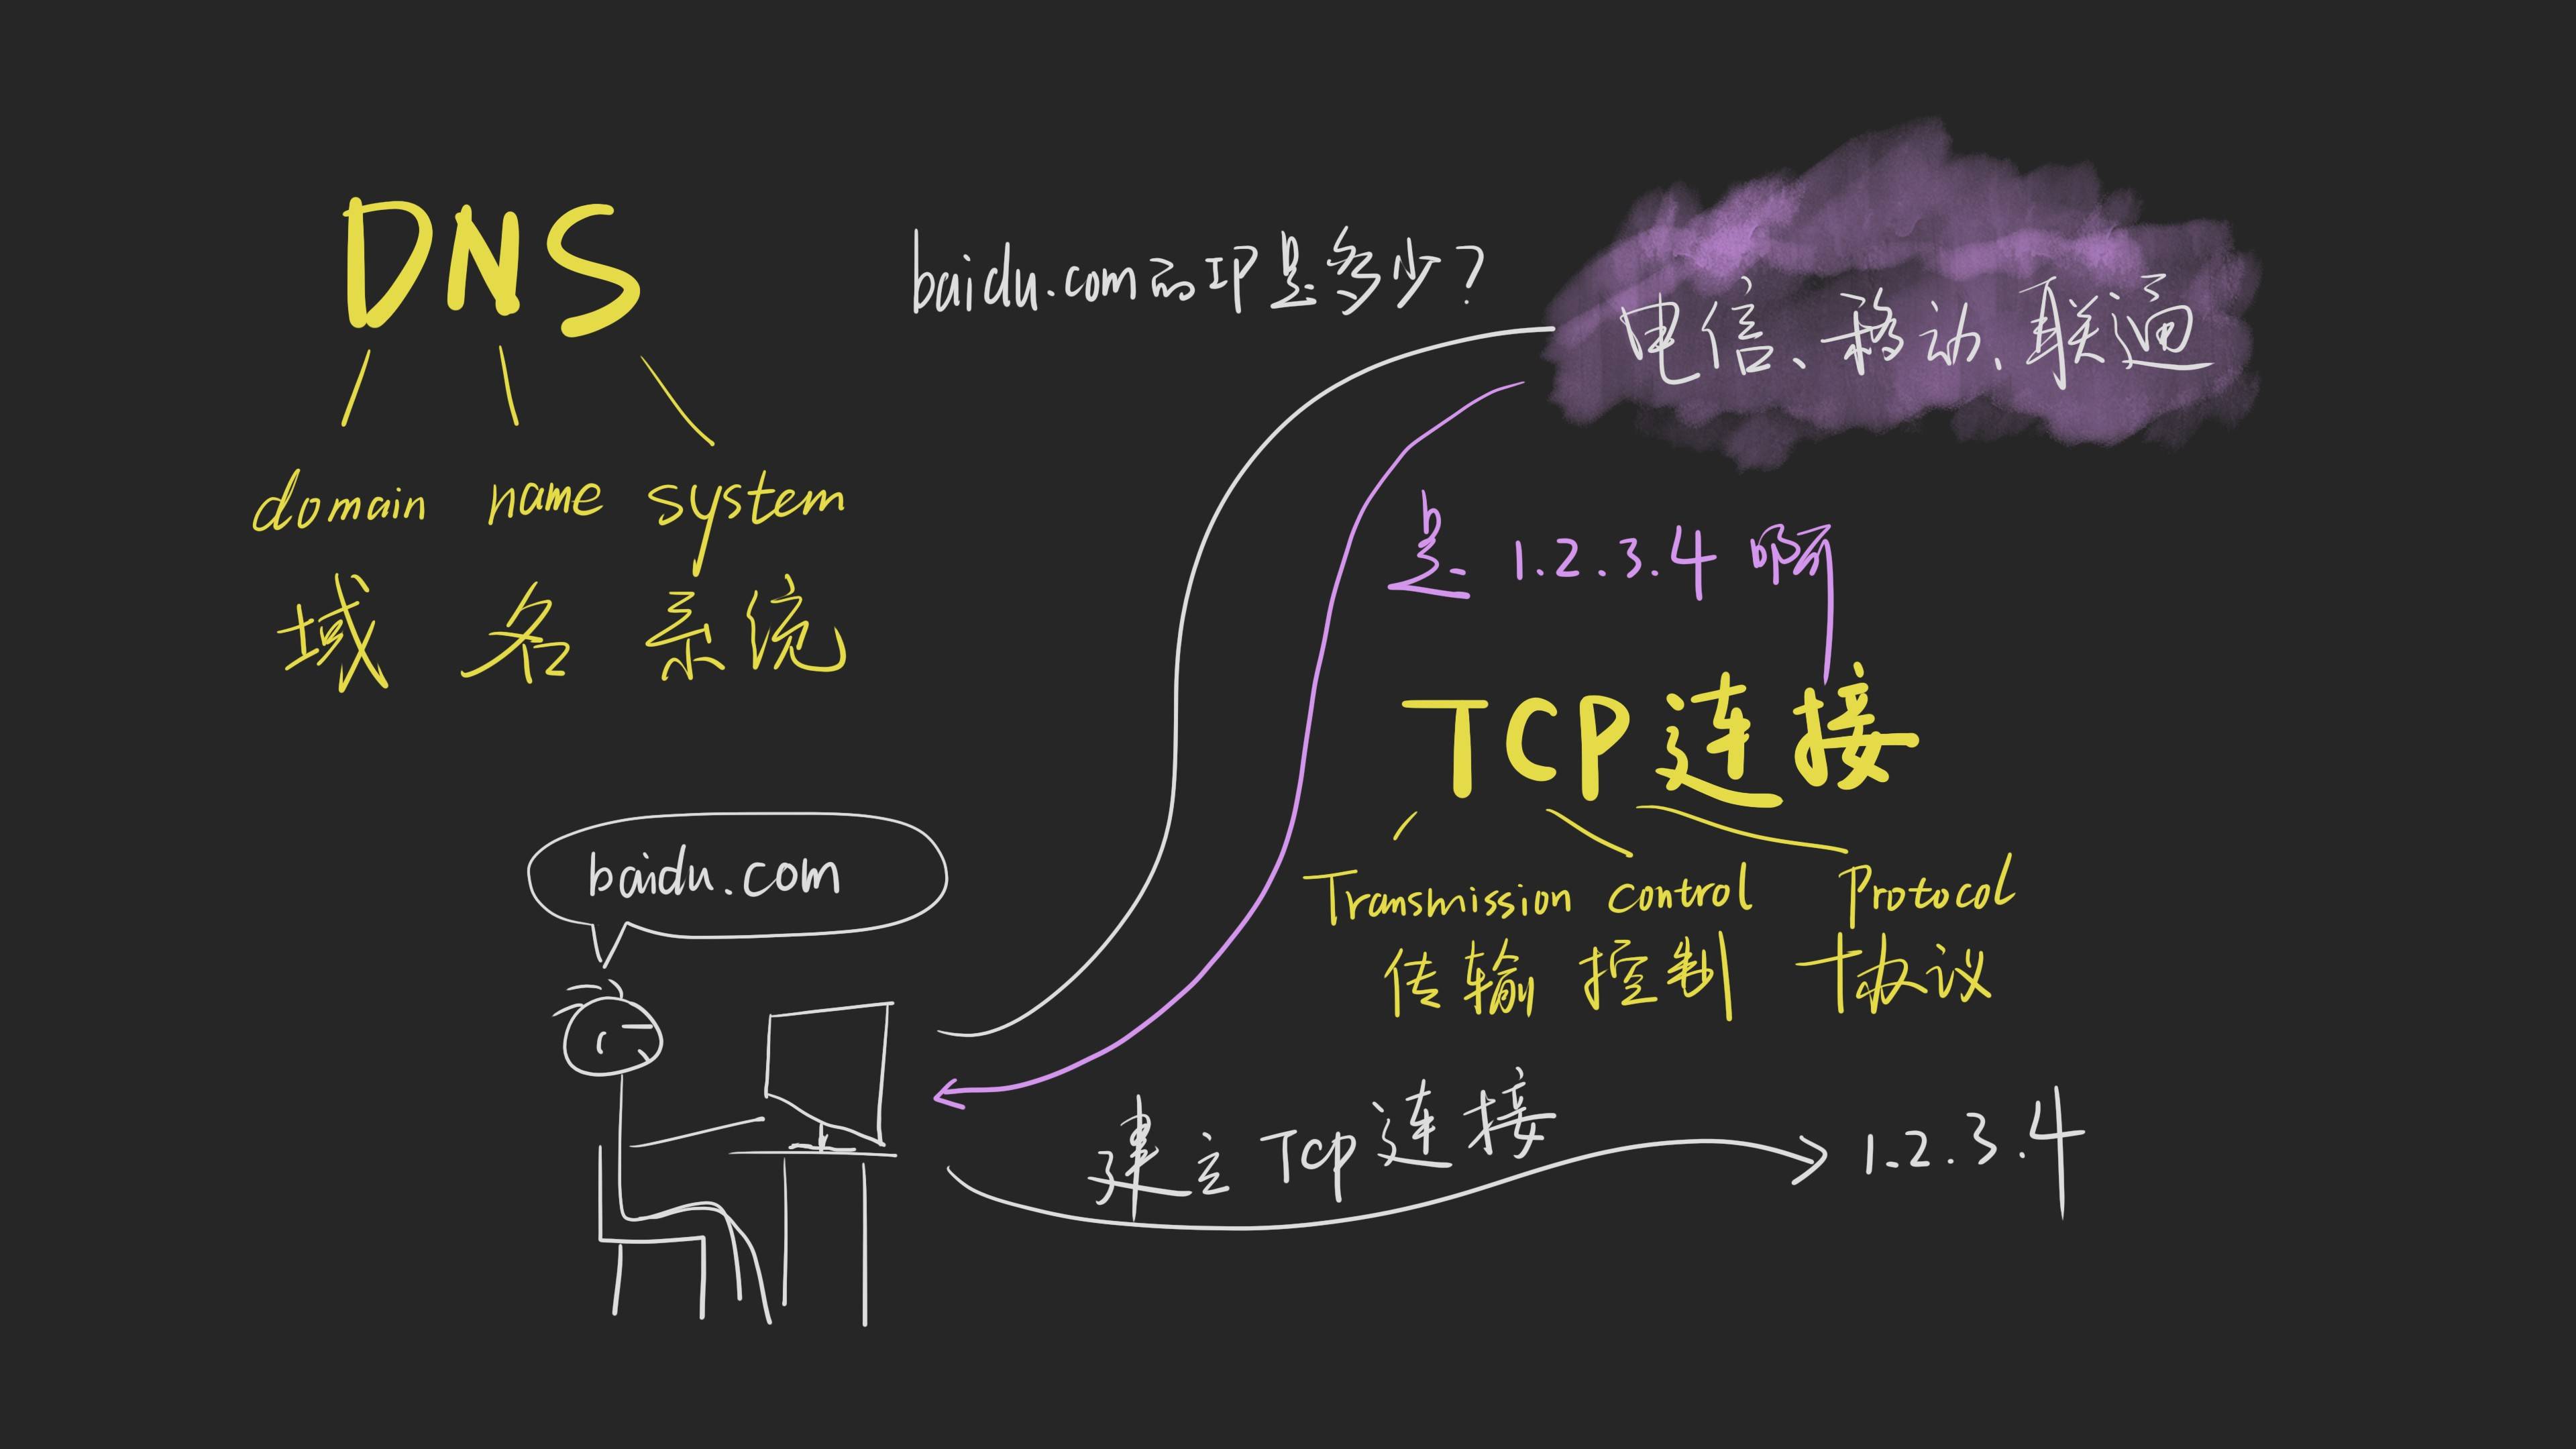 DNS
domain name system
域 名 系统
baidu.com的IP是多少?
电信、移动、联通
是 1.2.3.4 啊
TCP连接
Transmission control Protocol
传输 控制 协议
baidu.com
建立 Tcp连接
1.2.3.4